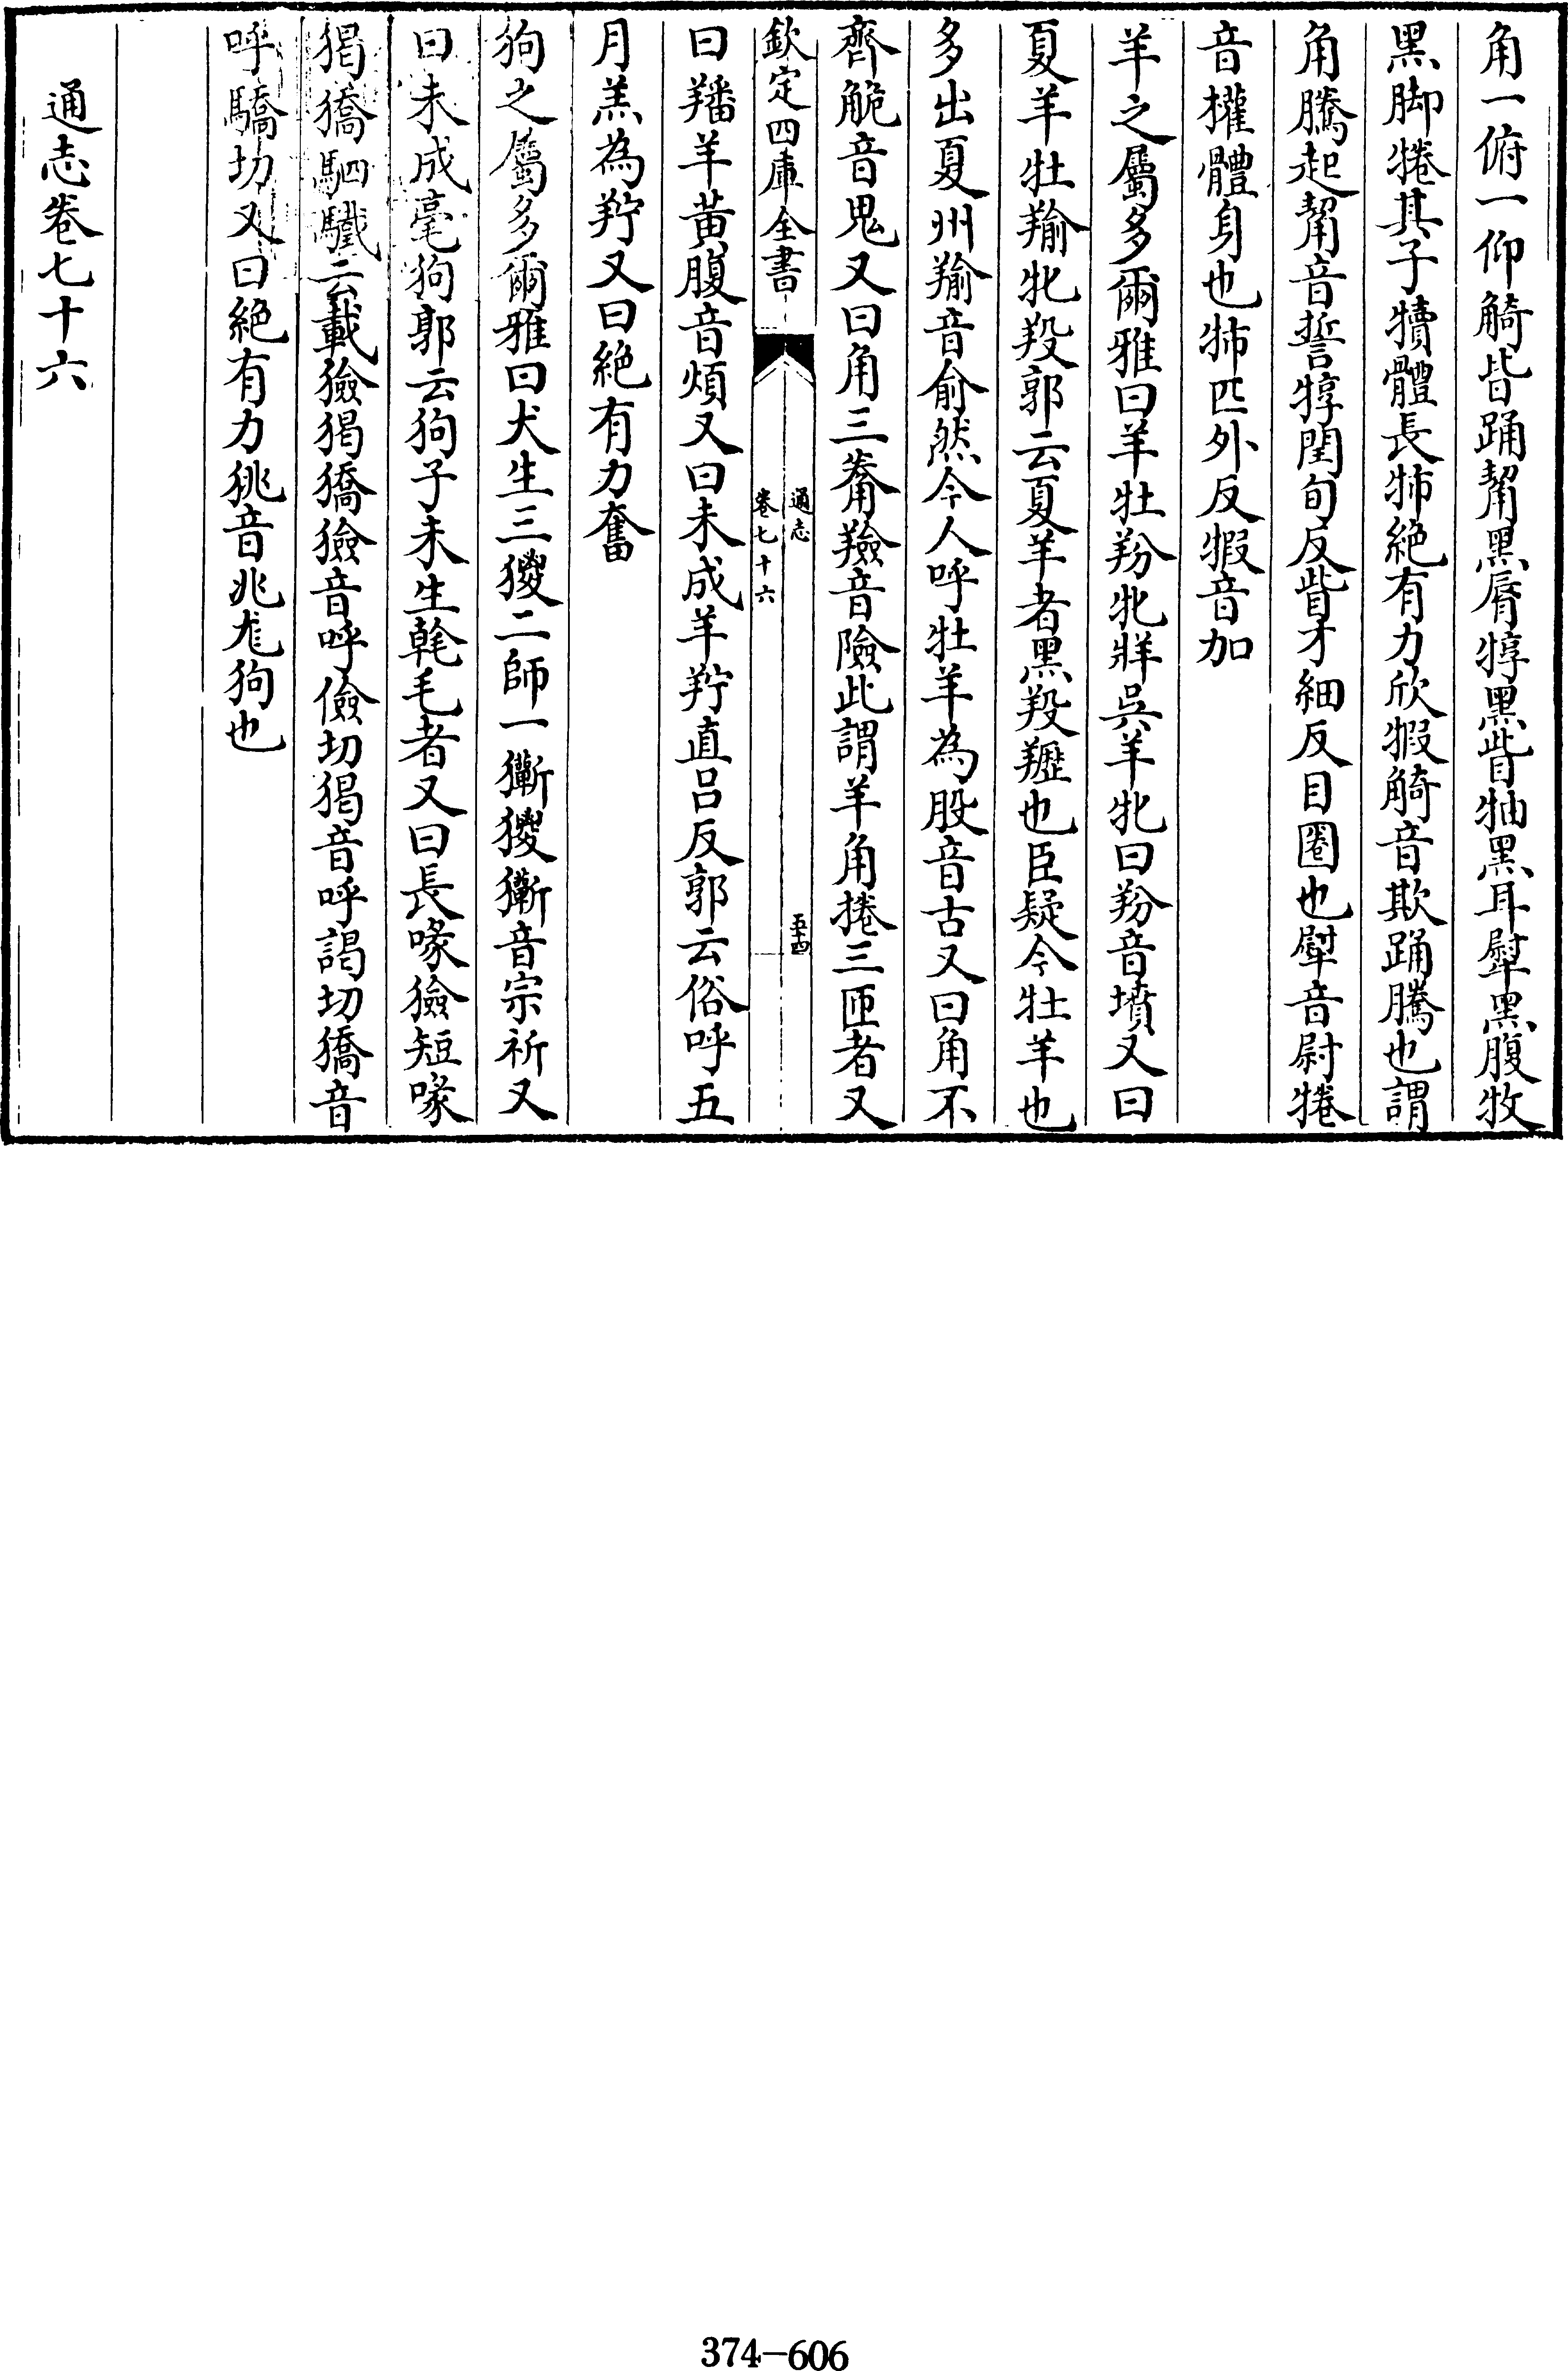 角一俯一仰觭皆踊觢黑脣犉黑眥牰黑耳犚黑腹牧
黑脚犈其子犢體長㸬絶有力欣犌觭音欺踊騰也謂
角騰起觢音誓犉閏旬反眥才細反目圏也犚音尉犈
音權體身也㸬匹外反犌音加
羊之屬多爾雅曰羊牡羒牝牂吳羊牝曰羒音墳又曰
夏羊牡羭牝羖郭云夏羊者黑羖䍽也臣疑今牡羊也
多出夏州羭音俞然今人呼牡羊為股音古又曰角不
齊觤音鬼又曰角三觠羷音險此謂羊角捲三匝者又
欽定四庫全書
通志
卷七十六
五十四
曰羳羊黄腹音煩又曰未成羊羜直吕反郭云俗呼五
月羔為羜又曰絶有力奮
狗之屬多爾雅曰犬生三猣二師一玂猣玂音宗祈又
曰未成毫狗郭云狗子未生𠦝毛者又曰長喙獫短喙
猲獢駟驖云載獫猲獢獫音呼儉切猲音呼謁切獢音
呼驕切又曰絶有力狣音兆尨狗也
通志卷七十六
374-606